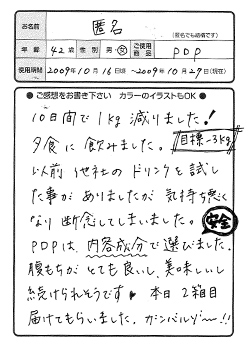 お名前 匿名
(匿名でも結構です)
年齢 42歳 性別 男・女 ご使用商品 PDP
使用期間 2009年10月16日頃 ~ 2009年10月27日(現在)
● ご感想をお書き下さい カラーのイラストもOK ●
10日間で1kg減りました!
夕食に飲みました。目標-3kg
以前他社のドリンクを試し
た事がありましたが気持ち悪く
なり断念してしまいました。安全
PDPは、内容成分で選びました。
腹もちがとても良いし、美味しいし
続けられそうです♥ 本日2箱目
届けてもらいました。ガンバルゾ~!!